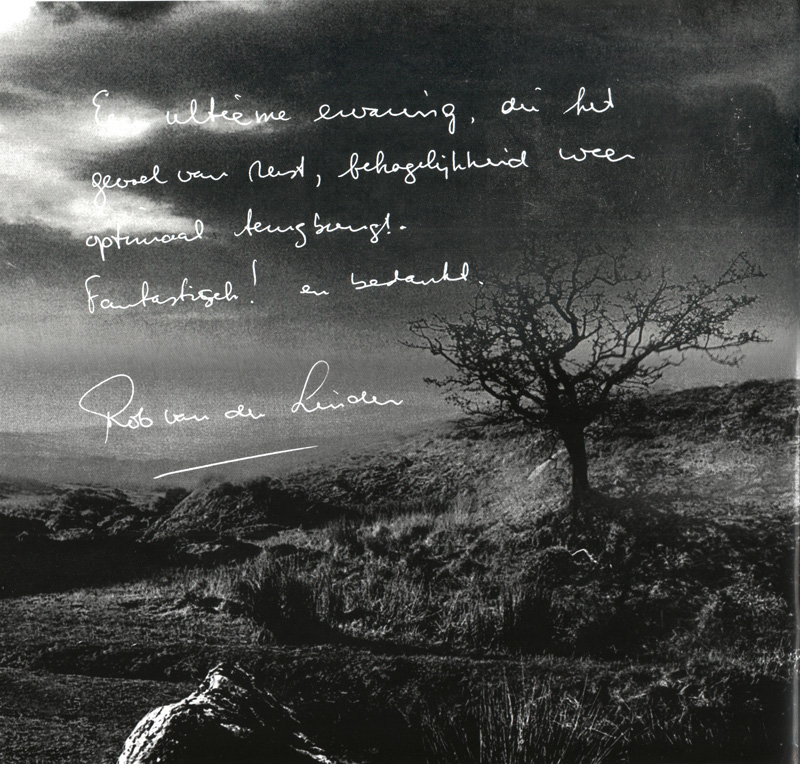 Een ultieme ervaring, die het
gevoel van rust, behagelijkheid weer
optimaal terugbrengt.
Fantastisch! en bedankt.
Rob van der Linden